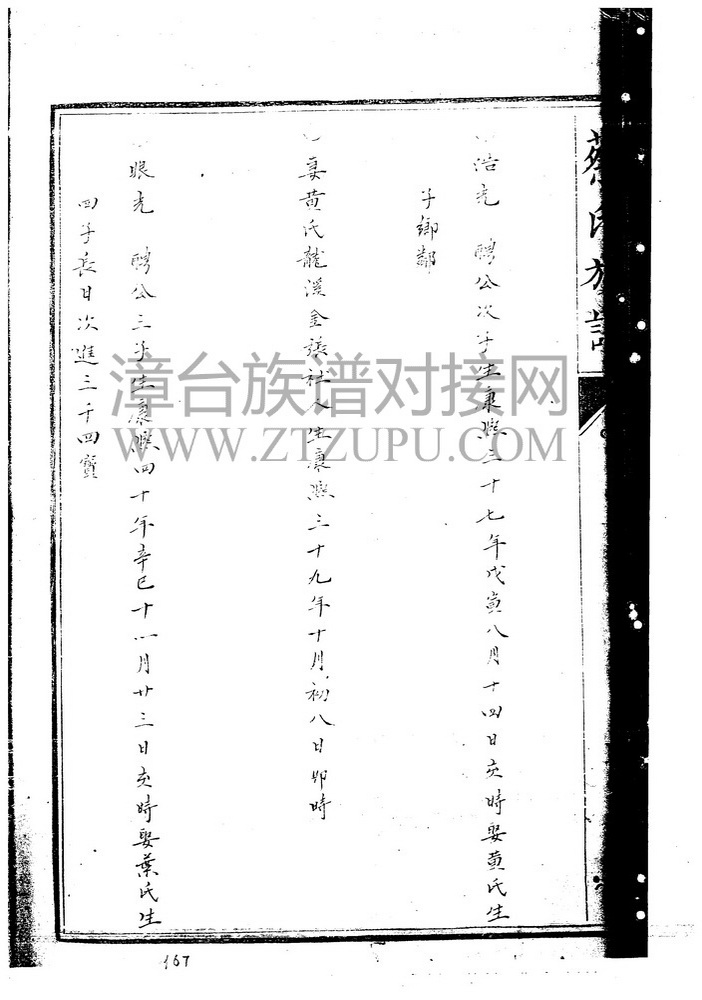 蔡氏族譜
浩光 聘公次子生康熙三十七年戊寅八月十四日亥時娶黄氏生
子鄉鄰
妻黄氏龍溪金 社人生康熙三十九年十月初八日卯時
眼光 聘公三子生康熙四十年辛巳十一月廿三日亥時娶葉氏生
四子長日次進三千四寶
漳台族谱对接网
WWW.ZTZUPU.COM
167